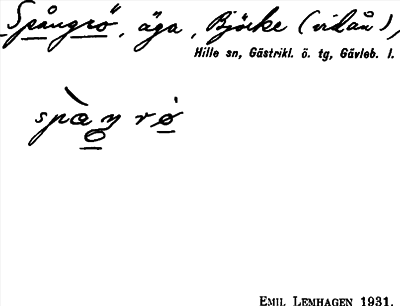 Spångrö, äga, Björke (vidån),
Hille sn, Gästrikl. ö. tg, Gävleb. l.
EMIL LEMHAGEN 1931.